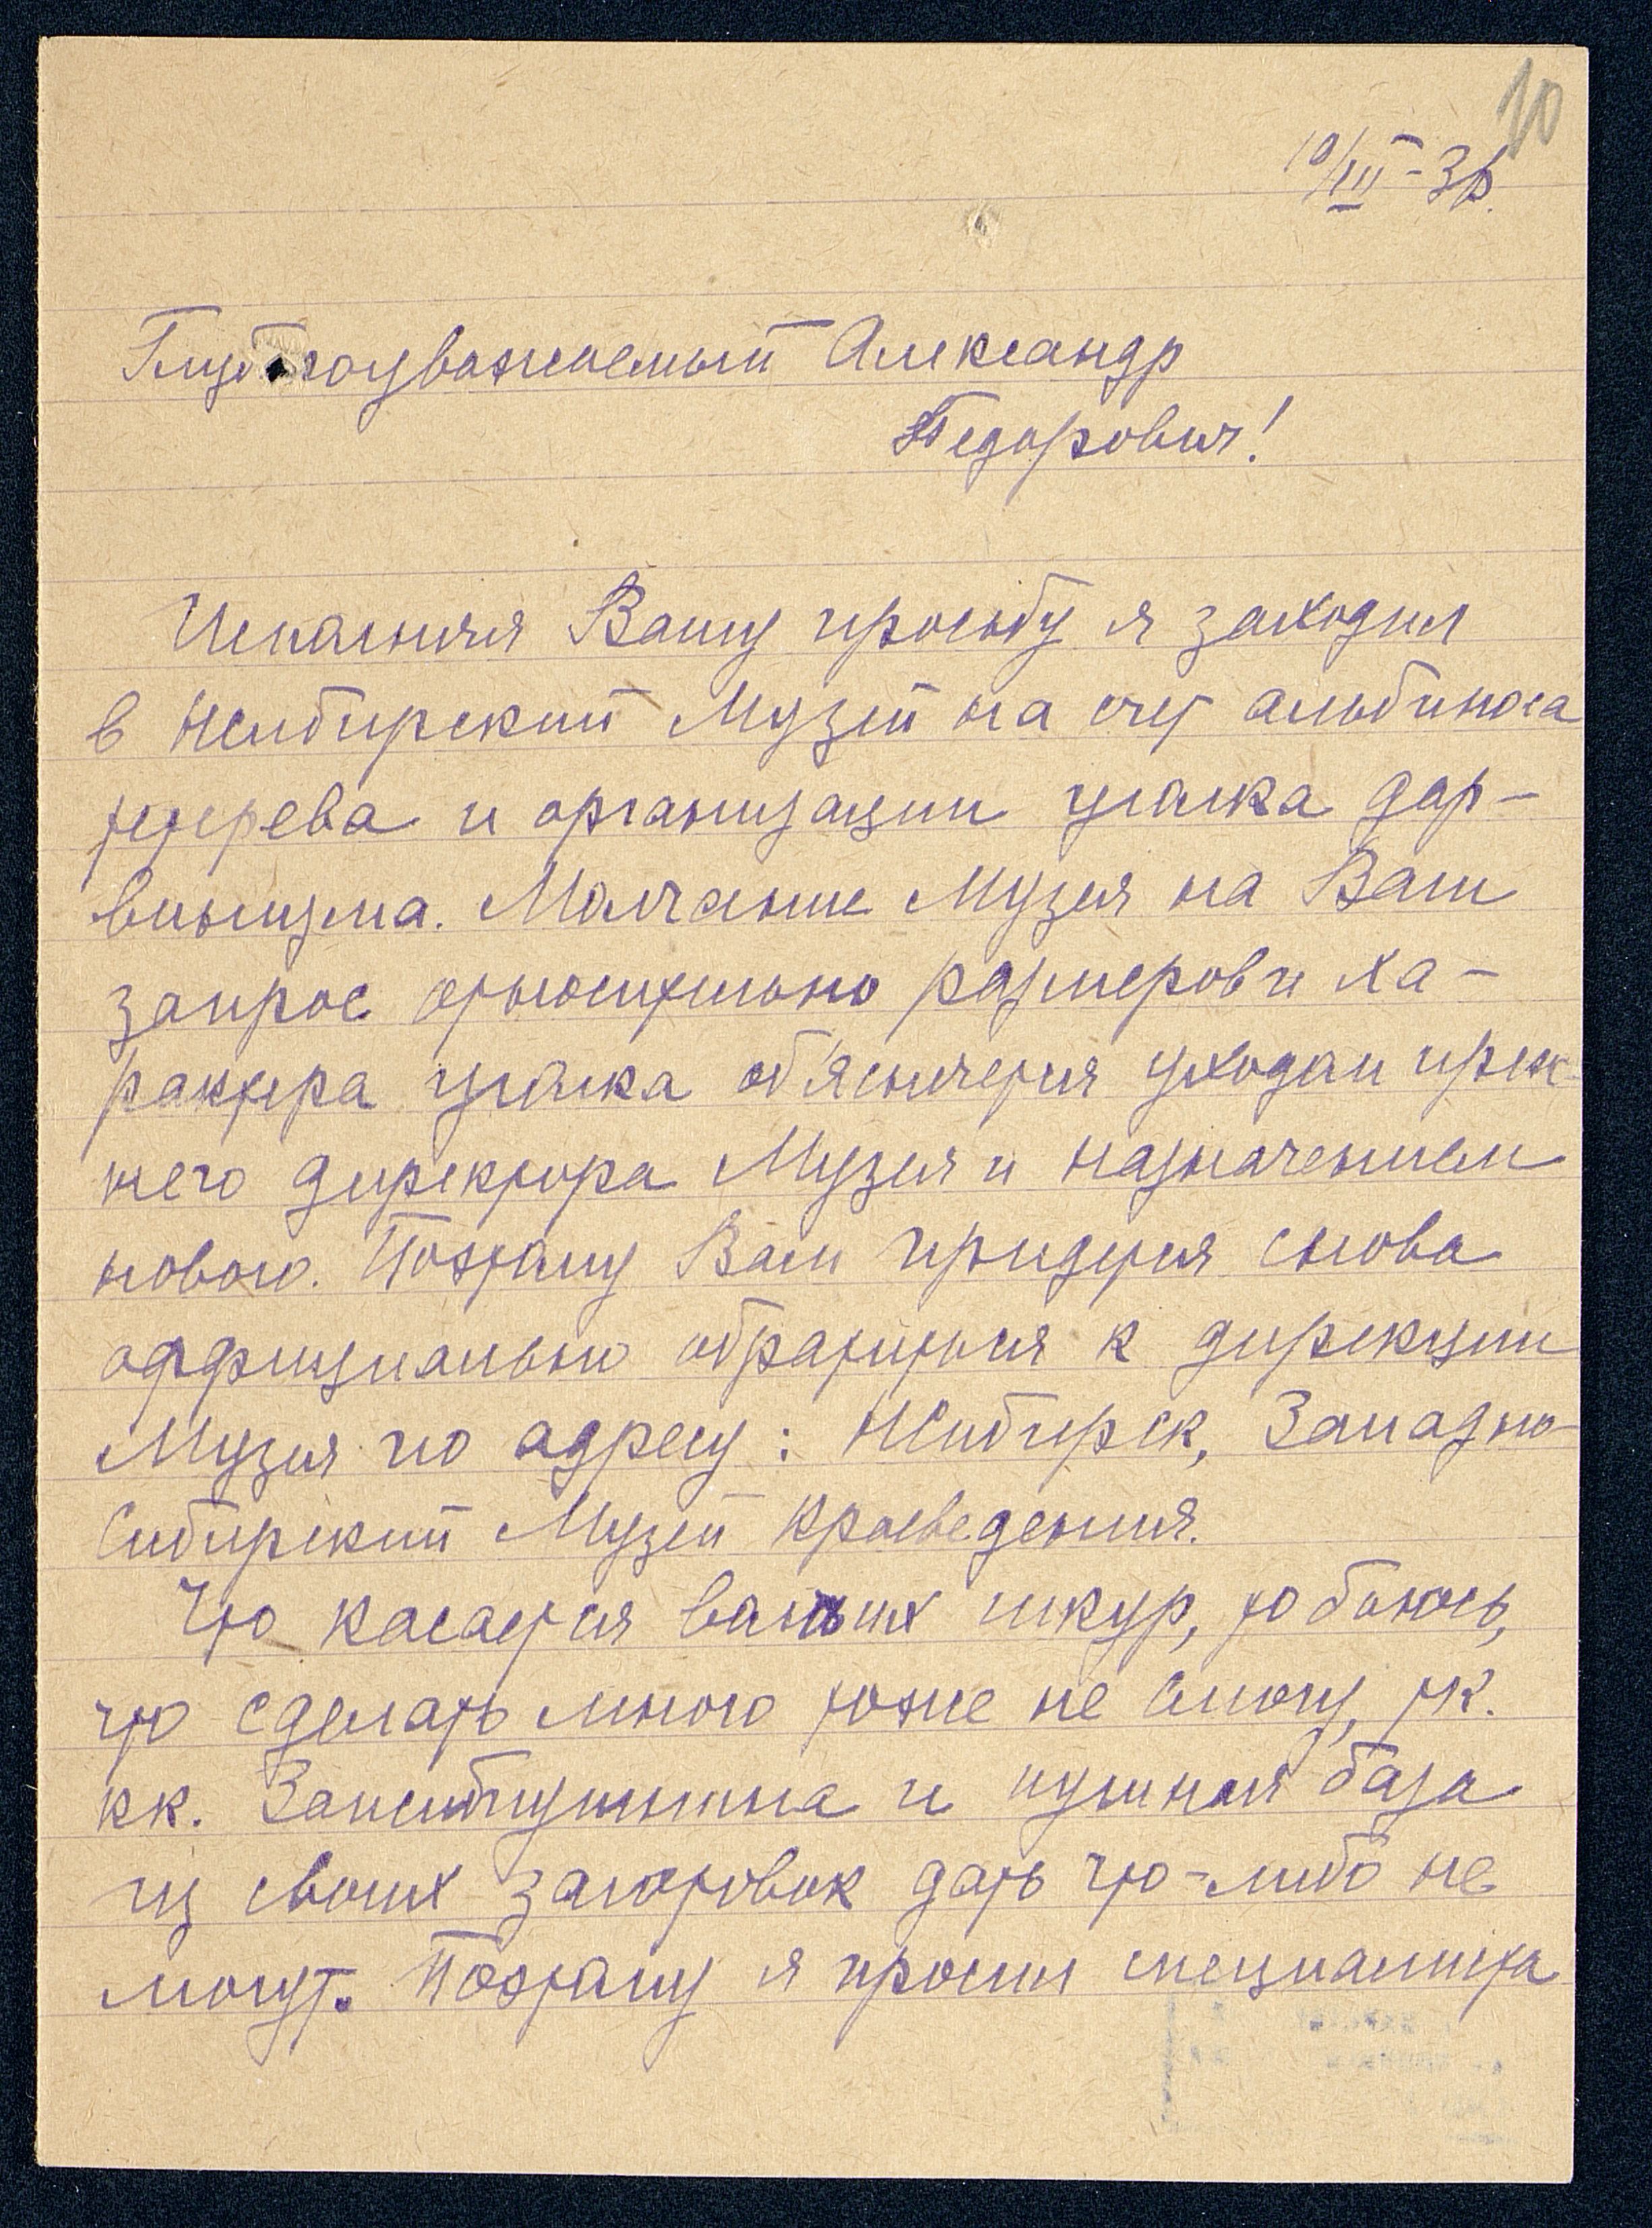 10
10/III-36.
Глубокоуважаемый Александр
Федорович!
Исполняя Вашу просьбу я заходил
в НСибирский Музей на счет альбиноса
тетерева и организации уголка дар-
винизма. Молчание Музея на Ваш
запрос относительно размеров и ха-
рактера уголка об'ясняется уходом преж-
него директора Музея и назначением
нового. Поэтому Вам придется снова
оффициально обратиться к дирекции
Музея по адресу: НСибирск, Западно-
Сибирский Музей Краеведения.
Что касается ваших шкур, то боюсь,
что сделать много тоже не смогу, т.к.
кк. Запсибпушнина и пушная база
из своих заготовок дать что-либо не
могут. Поэтому я просил специалиста